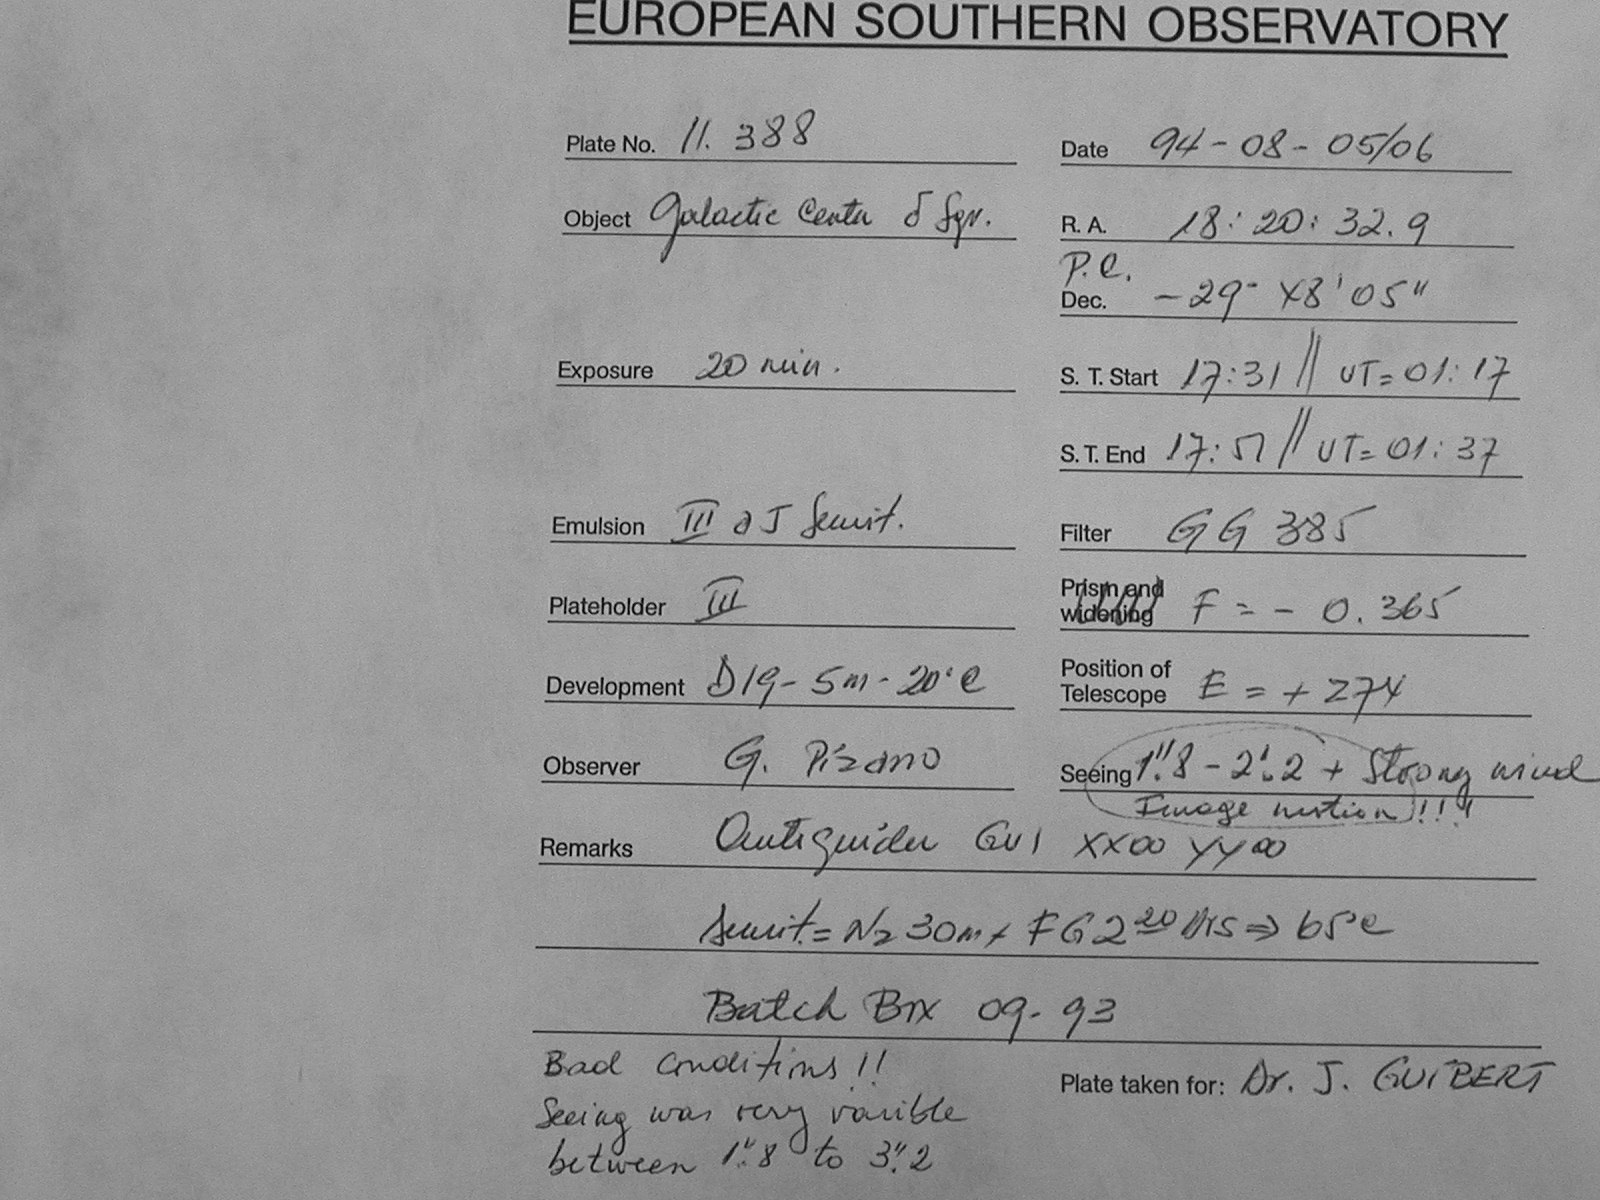 EUROPEAN SOUTHERN OBSERVATORY
Plate No. 11.388
Date 94-08-05/06
Object Galactic Center δ Sgr.
R. A. 18:20:32.9
P.C.
Dec. -29° 48' 05"
Exposure 20 min.
S. T. Start 17:31 // UT=01:17
S. T. End 17:51 // UT=01:37
Emulsion III a J Sensit.
Filter GG 385
Plateholder III
Prism and widening F = - 0.365
Development D19-5m-20°C
Position of Telescope E = + 274
Observer G. Pizarro
Seeing 1".8 - 2".2 + Strong wind
Image motion!!!!
Remarks Autoguider GU1 XX00 YY00
Sensit.= N2 30m + FG2 20 hrs ⇒ 65°C
Batch Box 09-93
Bad conditions!!
Plate taken for: Dr. J. GUIBERT
Seeing was very varible
between 1".8 to 3".2